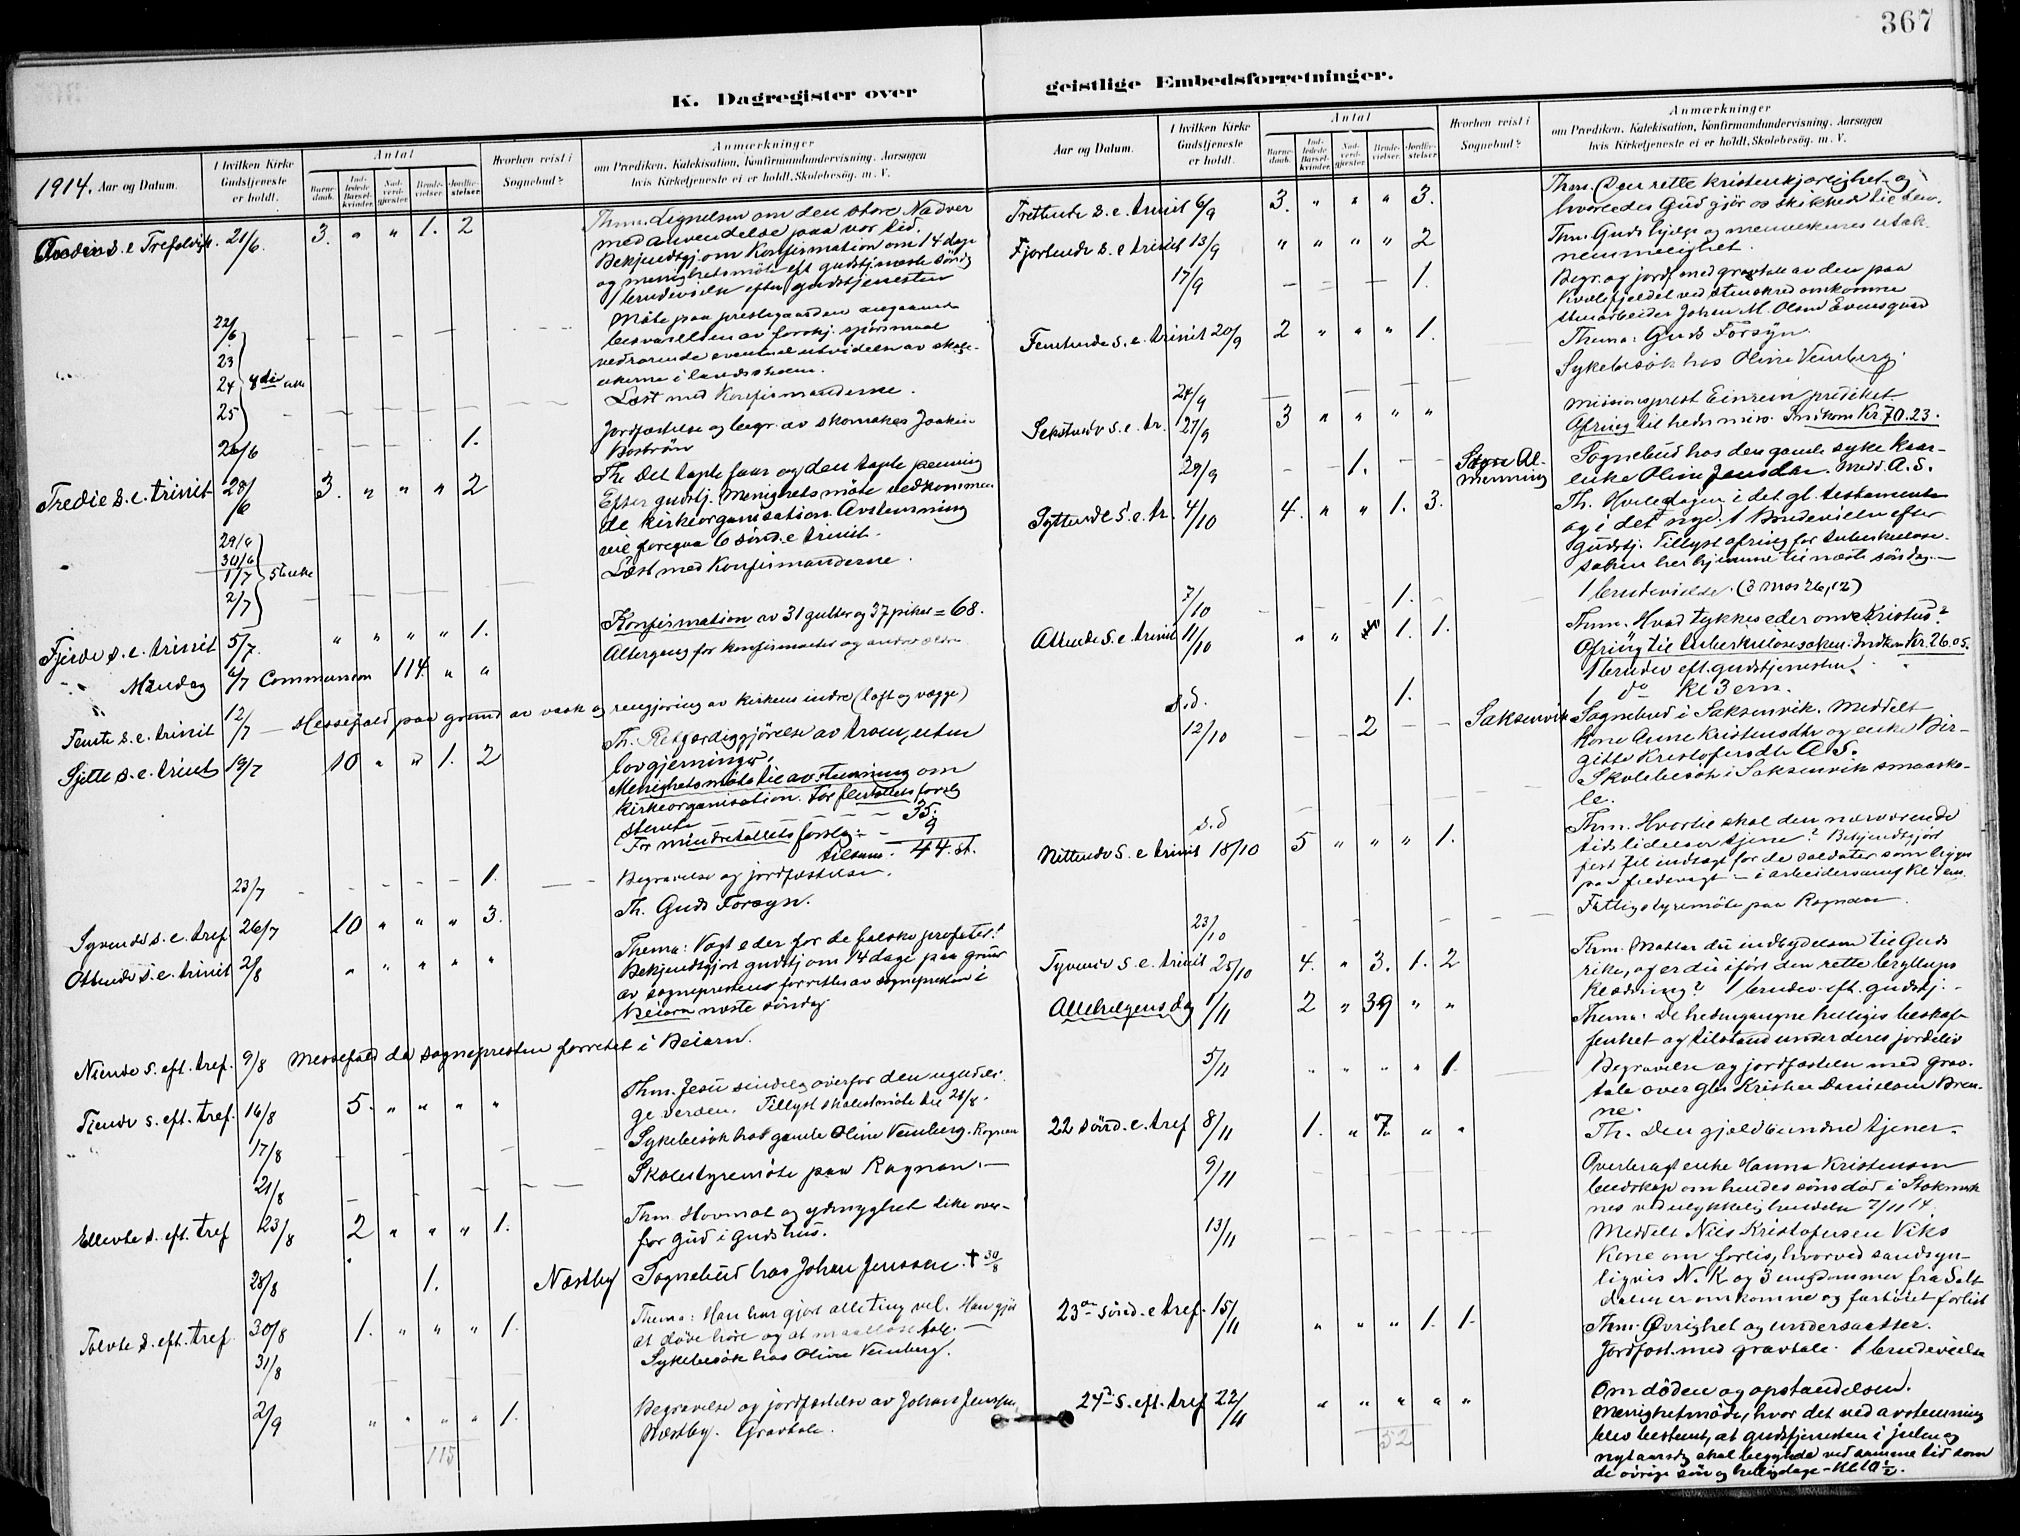 367
K. Dagregister over
geistlige Embedsforretninger.
1914. Aar og Datum.
I hvilken Kirke Gudstjeneste er holdt.
Antal
Barne-daab.
Ind-ledede Barsel-kvinder.
Nad-verd-gjæster.
Brude-vielser.
Jordfæ-stelser.
Hvorhen reist i Sognebud?
Anmærkninger
om Prædiken, Katekisation, Konfirmandundervisning, Aarsagen
hvis Kirketjeneste ei er holdt, Skolebesög. m. V.
s. e. Trefoldigh. 21/6. 3. " " 1. 2 Thm. Lignelsen om den store Nadver
med anvendelse paa vor tid.
Bekjendtgj. om Konfirmation om 14 dage
og menighetsmöte eft gudstjeneste
1 brudevielse efter gudstjenesten
22/6 Möte paa prestegaarden angaaende
besvarelsen av forskj. spörsmaal
23 vedrörende eventuel utvidelse av skole-
24 4de uke ukerne i landsskolen.
25 Læst med Konfirmanderne.
26/6 1. Jordfæstelse og begr. av skomaker
Boström
Tredie s. e. trinit 28/6 3. " " " 2 Th. Det tapte faar og den tapte penning
Efter gudstj. Menighetsmöte vedkommen-
de kirkeorganisation. Avstemning
vil foregaa 6 sönd. e. trinit.
29/6
30/6
1/7 5te uke Læst med Konfirmanderne.
2/7
Fjerde s. e. trinit 5/7. " " " " 1. Konfirmation av 31 gutter og 37 piker = 68.
Mandag 6/7 Communion 114. " " Altergang for konfirmanter og andre
Femte s. e. trinit 12/7 — Messefald paa grund av vask og rengjöring av kirkens indre (loft og vægge)
Sjette s. e. trinit 19/7 10 " " 1. 2 Th. Retfærdiggjörelse av troen, uten
lovgjerninger.
Menighetsmöte til avstemning om
kirkeorganisation. For flertallets forslag
stemte - - - - - 35.
For mindretallets forslag - - 9
tilsam. 44. st.
23/7 1. Begravelse og jordfæstelse.
Syvende s. e. tref 26/7 10 " " " 3. Th. Guds Forsyn.
Ottende s. e. trinit 2/8 " " " " " Thema: Vogt eder for de falske profeter!
Bekjendtgjort gudstj om 14 dage paa grund
av sognepresten forrettes av sognepresten i
Beiarn næste söndag.
Niende s. eft. tref. 9/8 Messefald da sognepresten forrettet i Beiarn.
Tiende s. eft. tref. 16/8 5. " " " " Thm. Jesu sindelag overfor den ugudeli-
ge verden. Tillyst skolestmöte til 21/8.
17/8 Sykebesök hos gamle Oline Vemberg. Rognan
21/8 Skolestyremöte paa Rognan. —
Ellevte s. eft. tref 23/8 2 " " " 1. Thm. Hovmot og ydmyghet like over-
for Gud i Guds hus.
28/8 1. Næstby Sognebud hos Johan Jenssen. † 30/8
Tolvte s. eft. tref. 30/8 1. " " " 1. Thema: Han har gjort alle ting vel. Han gjör
at döve höre og at maallöse tale. —
31/8 Sykebesök hos Oline Vemberg.
2/9 " " " " 1. Begravelse og jordfæstelse av Johan Jenssen,
Næstby. Gravtale.
115
Aar og Datum.
I hvilken Kirke Gudstjeneste er holdt.
Antal
Barne-daab.
Ind-ledede Barsel-kvinder.
Nad-verd-gjæster.
Brude-vielser.
Jordfæ-stelser.
Hvorhen reist i Sognebud?
Anmærkninger
om Prædiken, Katekisation, Konfirmandundervisning, Aarsagen
hvis Kirketjeneste ei er holdt, Skolebesög. m. V.
Trettende s. e. trinit 6/9 3. " " " 3. Thm. Den rette kristenkjærlighet og
hvorledes Gud gjör os skikket til den.
Fjortende s. e. trinit 13/9 " " " " 2 Thm. Guds hjelp og menneskenes utak-
nemmelighet.
17/9 1. Begr. og jordf. med gravtale av den paa
Kvælefjeldet ved stenskred omkomne
stenarbeider Johan M. Olsen Evensgaard
Femtende s. e. trinit 20/9 2 " " " 1. Thema: Guds Forsyn.
Sykebesök hos Oline Vemberg.
24/9
Sekstende s. e. tr. 27/9 3 " " " " Missionsprest Einrem prediket
Ofring til hedn. miss. Indkom Kr. 70.23.
29/9 1. Sogne Al-menning Sognebud hos den gamle syke kaar-
enke Oline Jensdtr. Medd. A. S.
Syttende s. e. tr. 4/10 4. " " 1. 3. Th. Hviledagen i det gl. testamente
og i det nye. 1 Brudevielse efter
Gudstj. Tillyst ofring for tuberkulose-
saken her hjemme til næste söndag. —
7/10 1. 1 brudevielse. (3 Mos 26,12)
Attende s. e. trinit 11/10 " " 1. 1. Thm. Hvad tykkes eder om Kristus?
Ofring til tuberkulosesaken. Indkom Kr. 26.05.
1 brudev eft. gudstjenesten.
s.d. 1. 1 do kl 3 em.
12/10 2 Saksenvik Sognebud i Saksenvik. Meddelt
kone Anne Kristensdtr og enke Bir-
gitte Kristofersdtr A. S.
s.d Skolebesök i Saksenvik smaasko-
le.
Nittende s. e. trinit 18/10 5 " " " 1. Thm. Hvortil skal den nærværende
tids lidelser tjene? Bekjendtgjört
fest til indtægt for de soldater som ligger
paa feldvagt — i arbeidersamf kl 4 em.
23/10 Fattigstyremöte paa Rognan.
Tyvende s. e. trinit 25/10 4. " 3. 1. 2 Thm. Mottar du indbydelsen til Guds
rike, og er du ifört den rette bryllups
klædning? 1 brudev. eft. gudstj.
Allehelgensdag 1/11 2 " 39 " " Thema: De hedengangne helliges beskaf-
fenhet og tilstand under deres jordeliv
5/11 " " " " 1. Begravelse og jordfæstelse med grav-
tale over Kristen Danielsen Bren-
ne.
22 sönd. e. tref 8/11 1. " 7. " " Th. Den gjældbundne tjener.
9/11 Overbragt enke Hanna Kristensen
budskap om hendes söns död i Stokmark-
nes ved ulykkelig hendelse 7/11 14.
13/11 Meddelt Nils Kristofersen Viks
Kone om forlis, hvorved sandsyn-
ligvis N. K og 3 ungdommer fra Salt-
dalen er omkomne og fartöiet forlist
23de sönd. e tref. 15/11 " " " 1. 1. Thm. Övrighet og undersaatter.
Jordfæst. med gravtale. 1 brudevielse
24de s. eft. tref 22/11 " " " " " Om döden og opstandelsen.
Menighetsmöde, hvor det ved avstemning
blev bestemt, at gudstjenesten i julen og
nytaarsdag skal begynde ved samme tid som
de övrige sön og helligdage - Kl. 10 1/2.
52